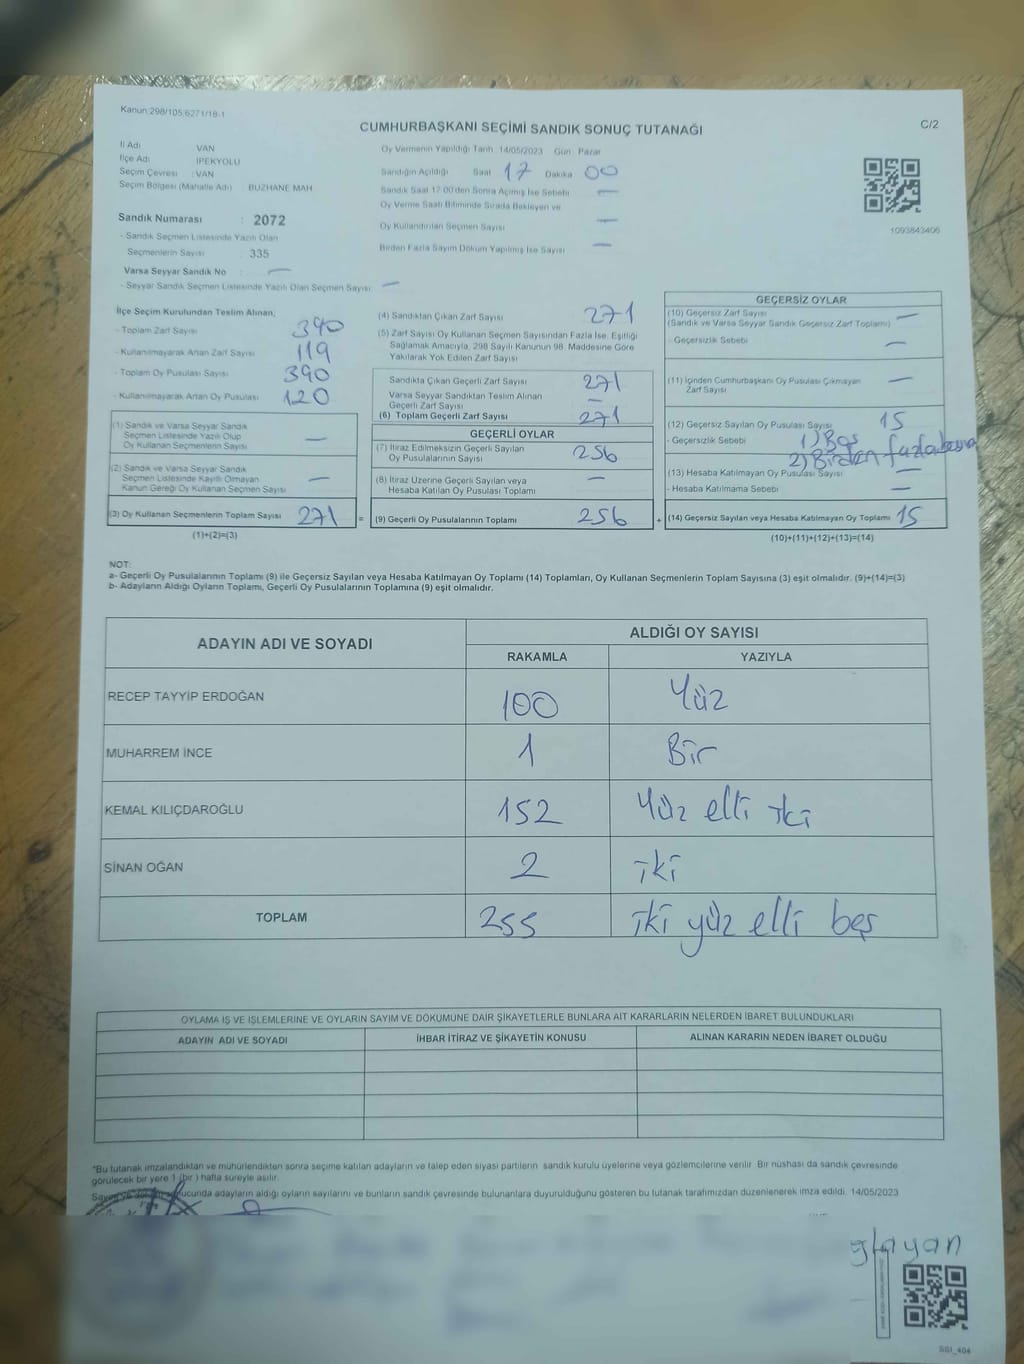 Kanun:298/105,6271/18-1
CUMHURBAŞKANI SEÇİMİ SANDIK SONUÇ TUTANAĞI
C/2
İl Adı VAN
İlçe Adı İPEKYOLU
Seçim Çevresi : VAN
Seçim Bölgesi (Mahalle Adı) BUZHANE MAH.
Oy Vermenin Yapıldığı Tarih :14/05/2023 Gün: Pazar
Sandığın Açıldığı Saat 17 Dakika 00
Sandık Saat 17:00'den Sonra Açılmış İse Sebebi —
Oy Verme Saati Bitiminde Sırada Bekleyen ve
Oy Kullandırılan Seçmen Sayısı —
Birden Fazla Sayım Döküm Yapılmış İse Sayısı —
1093843406
Sandık Numarası : 2072
- Sandık Seçmen Listesinde Yazılı Olan
Seçmenlerin Sayısı : 335
Varsa Seyyar Sandık No : —
- Seyyar Sandık Seçmen Listesinde Yazılı Olan Seçmen Sayısı: —
İlçe Seçim Kurulundan Teslim Alınan;
- Toplam Zarf Sayısı 390
- Kullanılmayarak Artan Zarf Sayısı 119
- Toplam Oy Pusulası Sayısı 390
- Kullanılmayarak Artan Oy Pusulası 120
(1) Sandık ve Varsa Seyyar Sandık
Seçmen Listesinde Yazılı Olup
Oy Kullanan Seçmenlerin Sayısı —
(2) Sandık ve Varsa Seyyar Sandık
Seçmen Listesinde Kayıtlı Olmayan
Kanun Gereği Oy Kullanan Seçmen Sayısı —
(3) Oy Kullanan Seçmenlerin Toplam Sayısı 271 =
(1)+(2)=(3)
(4) Sandıktan Çıkan Zarf Sayısı 271
(5) Zarf Sayısı Oy Kullanan Seçmen Sayısından Fazla İse, Eşitliği
Sağlamak Amacıyla, 298 Sayılı Kanunun 98. Maddesine Göre
Yakılarak Yok Edilen Zarf Sayısı
Sandıkta Çıkan Geçerli Zarf Sayısı 271
Varsa Seyyar Sandıktan Teslim Alınan
Geçerli Zarf Sayısı —
(6) Toplam Geçerli Zarf Sayısı 271
GEÇERLİ OYLAR
(7) İtiraz Edilmeksizin Geçerli Sayılan
Oy Pusulalarının Sayısı 256
(8) İtiraz Üzerine Geçerli Sayılan veya
Hesaba Katılan Oy Pusulası Toplamı —
(9) Geçerli Oy Pusulalarının Toplamı 256 +
GEÇERSİZ OYLAR
(10) Geçersiz Zarf Sayısı —
(Sandık ve Varsa Seyyar Sandık Geçersiz Zarf Toplamı)
- Geçersizlik Sebebi —
(11) İçinden Cumhurbaşkanı Oy Pusulası Çıkmayan
Zarf Sayısı —
(12) Geçersiz Sayılan Oy Pusulası Sayısı 15
Geçersizlik Sebebi 1) Boş
2) Birden fazla basma
(13) Hesaba Katılmayan Oy Pusulası Sayısı —
- Hesaba Katılmama Sebebi —
(14) Geçersiz Sayılan veya Hesaba Katılmayan Oy Toplamı 15
(10)+(11)+(12)+(13)=(14)
NOT:
a- Geçerli Oy Pusulalarının Toplamı (9) ile Geçersiz Sayılan veya Hesaba Katılmayan Oy Toplamı (14) Toplamları, Oy Kullanan Seçmenlerin Toplam Sayısına (3) eşit olmalıdır. (9)+(14)=(3)
b- Adayların Aldığı Oyların Toplamı, Geçerli Oy Pusulalarının Toplamına (9) eşit olmalıdır.
ADAYIN ADI VE SOYADI
ALDIĞI OY SAYISI
RAKAMLA YAZIYLA
RECEP TAYYİP ERDOĞAN 100 Yüz
MUHARREM İNCE 1 Bir
KEMAL KILIÇDAROĞLU 152 Yüz elli iki
SİNAN OĞAN 2 iki
TOPLAM 255 iki yüz elli beş
OYLAMA İŞ VE İŞLEMLERİNE VE OYLARIN SAYIM VE DÖKÜMÜNE DAİR ŞİKAYETLERLE BUNLARA AİT KARARLARIN NELERDEN İBARET BULUNDUKLARI
ADAYIN ADI VE SOYADI İHBAR İTİRAZ VE ŞİKAYETİN KONUSU ALINAN KARARIN NEDEN İBARET OLDUĞU
*Bu tutanak imzalandıktan ve mühürlendikten sonra seçime katılan adayların ve talep eden siyasi partilerin sandık kurulu üyelerine veya gözlemcilerine verilir. Bir nüshası da sandık çevresinde
görülecek bir yere 1 (bir) hafta süreyle asılır.
Sayım ve döküm sonucunda adayların aldığı oyların sayılarını ve bunların sandık çevresinde bulunanlara duyurulduğunu gösteren bu tutanak tarafımızdan düzenlenerek imza edildi. 14/05/2023